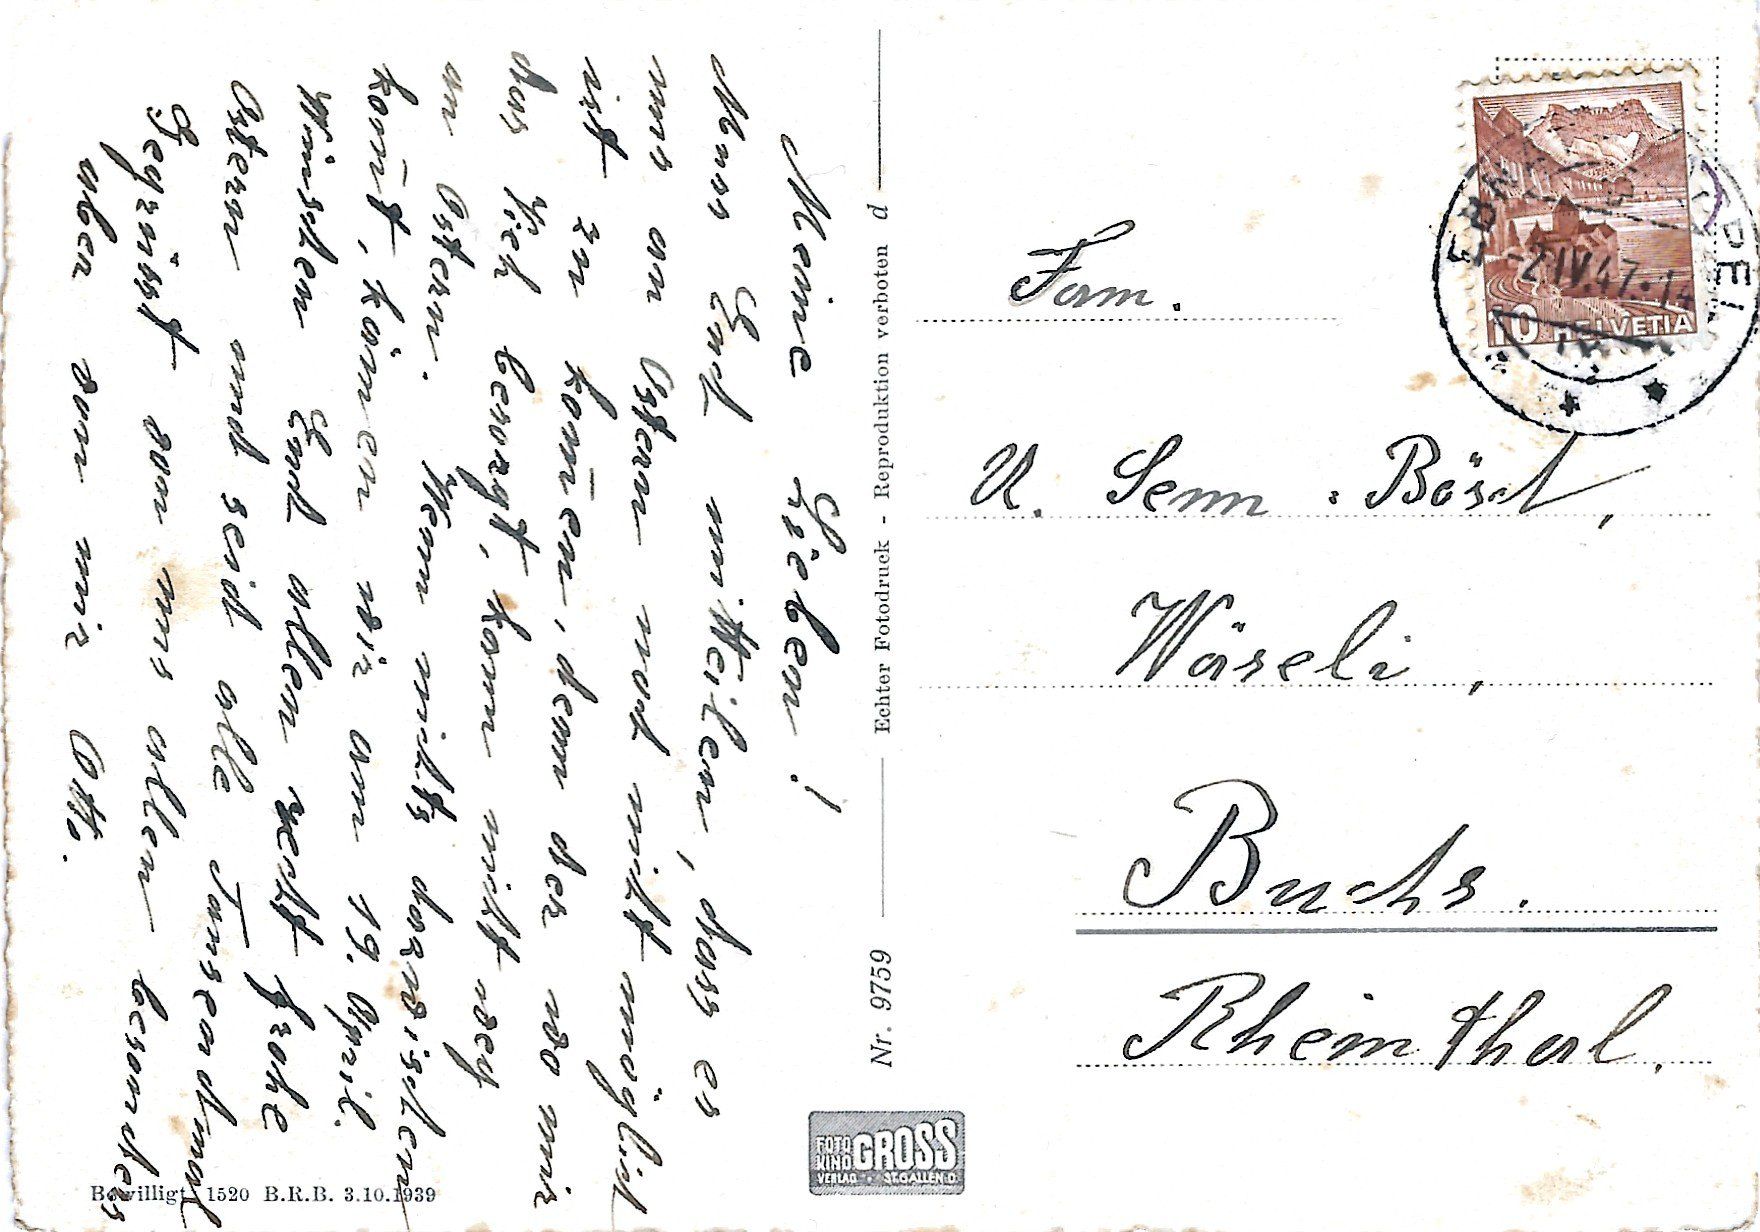 Meine Lieben!
Muss Euch mitteilen, dass es
uns an Ostern noch nicht möglich
ist zu kom̄en, denn der wo mir
das Vieh besorgt, kann nicht weg
an Ostern. Wenn nichts dazwischen
kom̄t, kom̄en wir am 19. April.
Wünschen Euch allen recht frohe
Ostern und seid alle Tausendmal
Gegrüsst von uns allen besonders
aber von mir Otto.
Bewilligt 1520 B.R.B. 3.10.1939
Nr. 9759 Echter Fotodruck - Reproduktion verboten d
FOTO KINO GROSS
VERLAG • ST.GALLEN O.
-2.IV.47.-14
10 HELVETIA
Fam.
U. Senn - Bösch,
Wäseli,
Buchs.
Rheinthal.